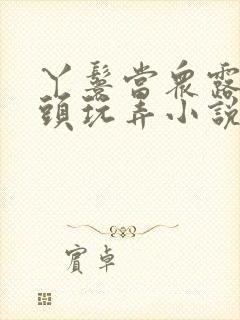 丫鬟當眾露
頭玩弄小說
賓卓